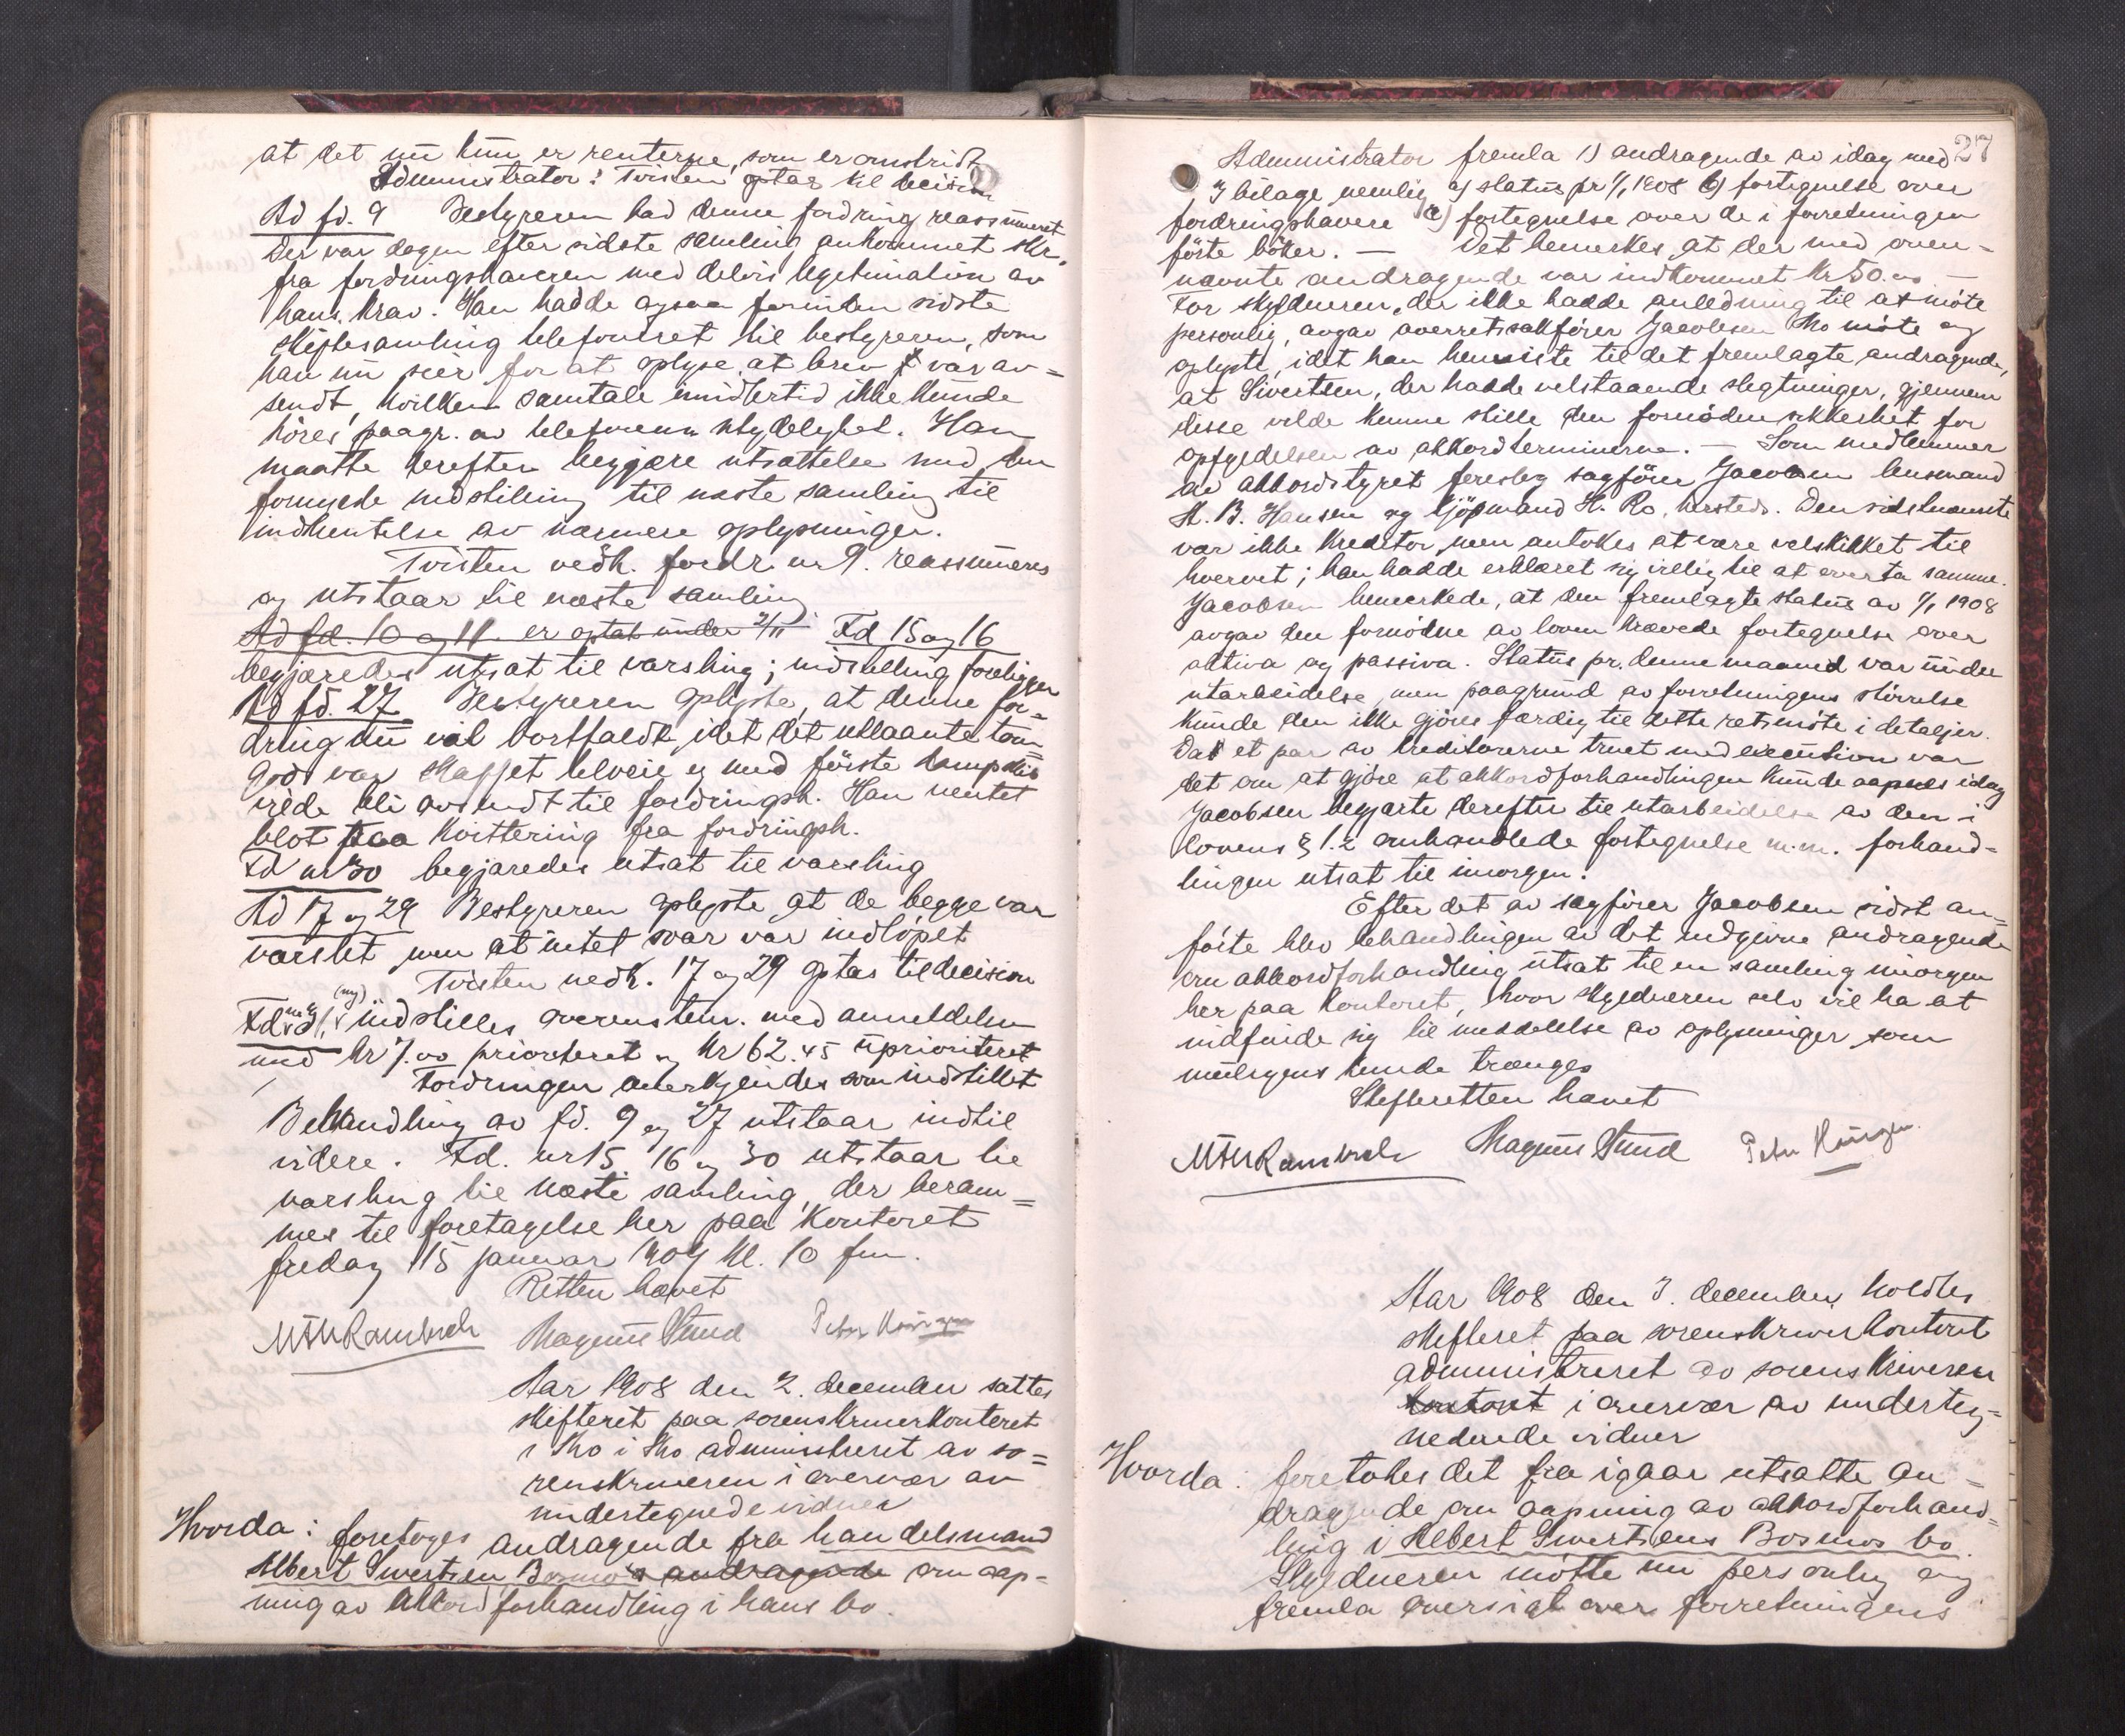 at det nu kun er renterne, som er omstridt
Administrator: Tvisten optas til decision
Ad fd. 9 Bestyreren bad denne fordring reassumeret
Der var dagen efter sidste samling ankommet skr.
fra fordringshaveren med delvis legitimation av
hans krav. Han hadde ogsaa forinden sidste
skiftesamling telefoneret til bestyreren, som
han nu sier for at oplyse, at brev var av=
sendt, hvilken samtale imidlertid ikke kunde
høres paagr. av telefonens utydelighet. Han
maatte derefter begjære utsættelse med den
fornyede indstilling til næste samling til
indhentelse av nærmere oplysninger.
Tvisten vedk. fordr. nr 9. reassumeres
og utstaar til næste samling
Ad fd. 10 og 11 er optat under 2/11 Fd 15 og 16
begjæredes utsat til varsling; indstilling foreligger
Ad fd. 27 Bestyreren oplyste, at denne for=
dring nu vil bortfaldt, idet det utlaante tom
gods var skaffet tilveie og med første dampskib
vilde bli avsendt til fordringsh. Han ventet
blot paa kvittering fra fordringsh.
Fd nr 30 begjæredes utsat til varsling
Ad 17 og 29 Bestyreren oplyste at de begge var
varslet men at intet svar var indløpet
Tvisten vedk. 17 og 29 optas til decision
Fd nr 31 (ny) indstilles overenstem. med anmeldelsen
med kr 7.00 prioriteret og kr 62.45 uprioriteret
Fordringen anerkjendes som indstillet
Behandling av fd. 9 og 27 utstaar indtil
videre. Fd. nr 15. 16 og 30 utstaar til
varsling til næste samling, der beram=
mes til foretagelse her paa kontoret
fredag 15 januar 1909 kl. 10 fm.
Retten hævet
Magnus Sund Peter
Aar 1908 den 2. december sattes
skifteret paa sorenskriverkontoret
i Mo i Mo administreret av so=
renskriveren i overvær av
undertegnede vidner
Hvorda: foretoges andragende fra handelsmand
Albert Sivertsen Bosmo's andragende om aap=
ning av Akkordforhandling i hans bo.
27
Administrator fremla 1) andragende av idag med
3 bilage nemlig a) status pr 1/1 1908 b) fortegnelse over
fordringshavere c) fortegnelse over de i forretningen
førte bøker. — Det bemerkes at der med oven=
nævnte andragende var indkommet kr 50.00 —
For skyldneren, der ikke hadde anledning til at møte
personlig, avgav overretssakfører Jacobsen Mo møte og
oplyste, idet han henviste til det fremlagte andragende,
at Sivertsen, der hadde velstaaende slegtninger, gjennem
disse vilde kunne stille den fornødne sikkerhet for
opfyldelsen av akkordterminerne. — Som medlemmer
av akkordstyret foreslog sagfører Jacobsen lensmand
H. B. Hansen og kjøpmand H. Ro, hersteds. Den sidstnævnte
var ikke kreditor, men antokes at være velskikket til
hvervet; han hadde erklæret sig villig til at overta samme.
Jacobsen bemerkede, at den fremlagte status av 1/1 1908
avgav den fornødne av loven krævede fortegnelse over
aktiva og passiva. Status pr. denne maaned var under
utarbeidelse, men paagrund av forretningens størrelse
kunde den ikke gjøres færdig til dette retsmøte i detaljer.
Da et par av kreditorerne truet med execution var
det om at gjøre at akkordforhandlingen kunde aapnes idag
Jacobsen begjærte derefter til utarbeidelse av den i
lovens § 1.2 omhandlede fortegnelse m.m. forhand=
lingen utsat til imorgen.
Efter det av sagfører Jacobsen sidst an=
førte blev behandlingen av det indgivne andragende
om akkordforhandling utsat til en samling imorgen
her paa kontoret, hvor skyldneren selv vil ha at
indfinde sig til meddelelse av oplysninger som
muligens kunde trænges
Skifteretten hævet
Magnus Sund Peter
Aar 1908 den 3. december holdtes
skifteret paa sorenskriverkontoret
administreret av sorenskriveren
kontoret i overvær av underteg=
nedende vidner
Hvorda: foretokes det fra igaar utsatte an=
dragende om aapning av akkordforhand=
ling i Albert Sivertsens Bosmos bo.
Skyldneren møtte nu personlig og
fremla oversigt over forretningens